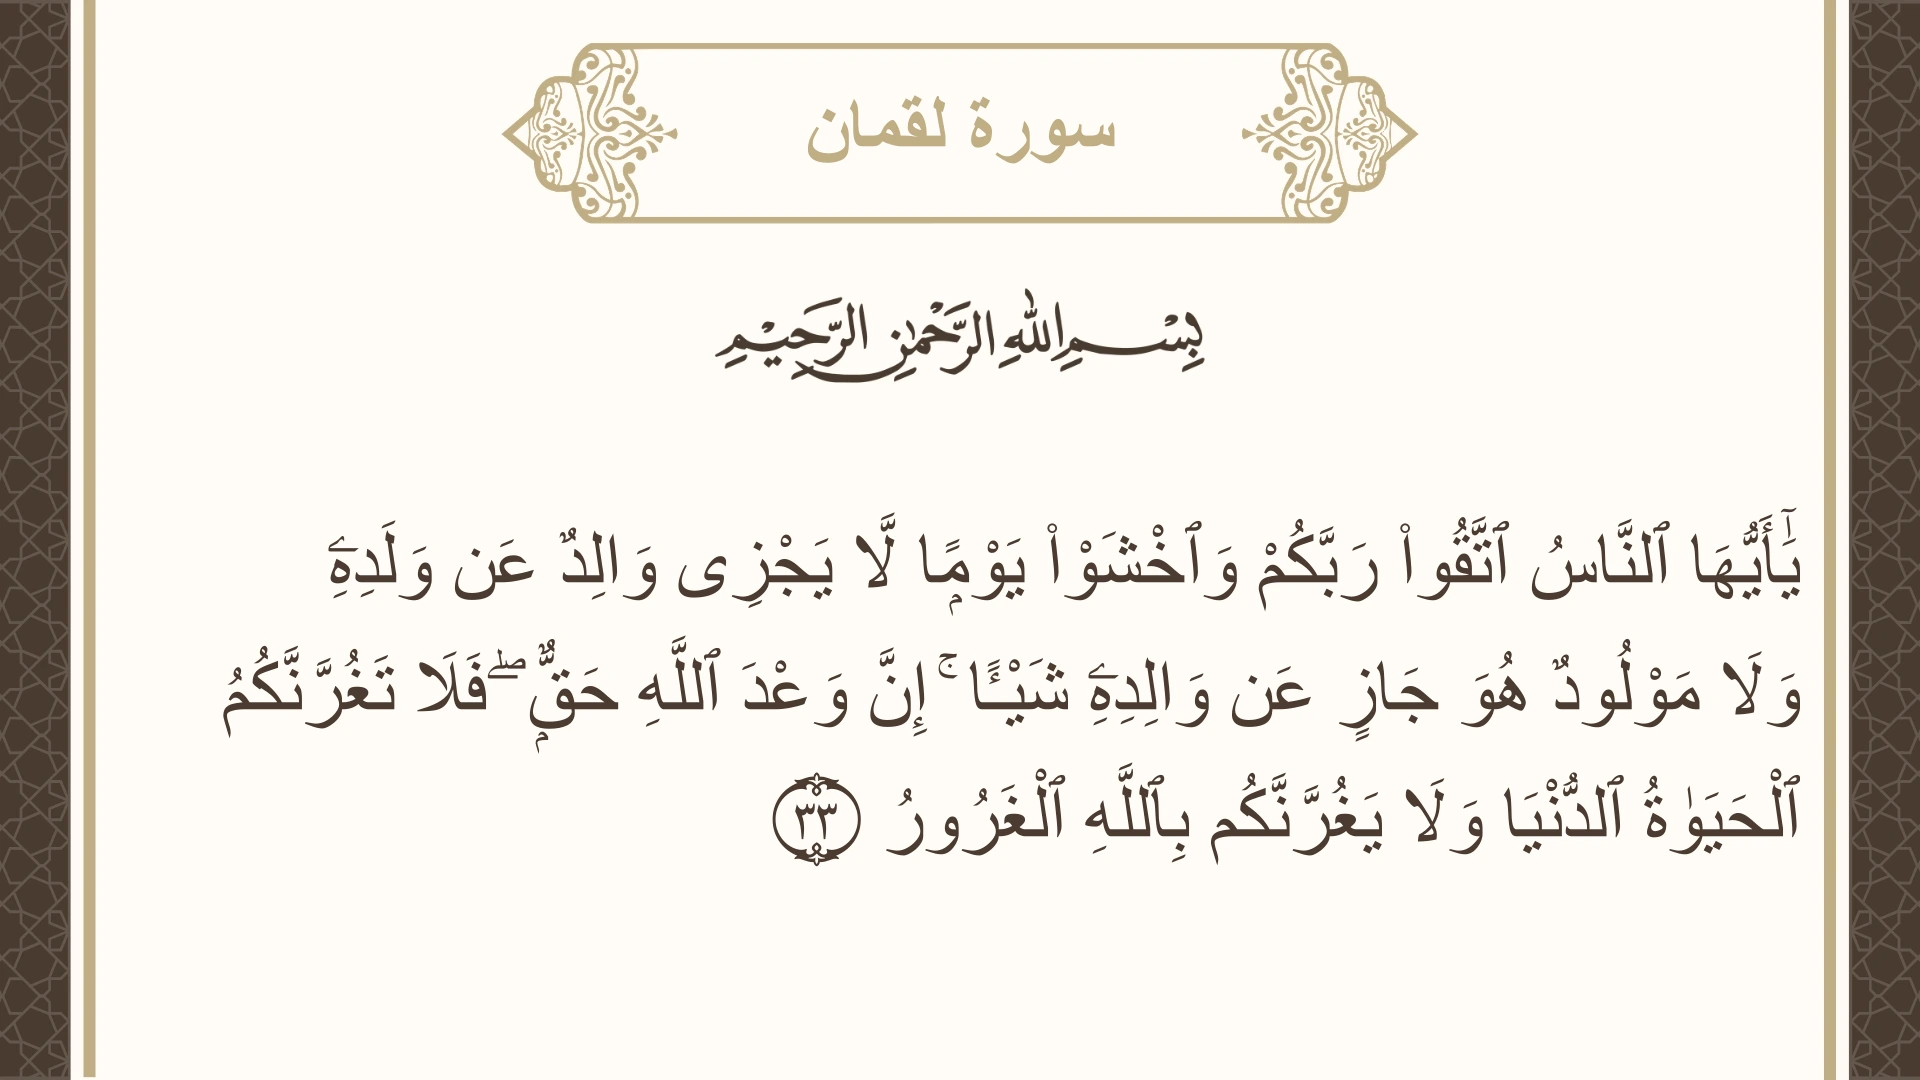 سورة لقمان
بِسْمِ اللهِ الرَّحْمٰنِ الرَّحِيْمِ
يَٰٓأَيُّهَا ٱلنَّاسُ ٱتَّقُوا۟ رَبَّكُمْ وَٱخْشَوْا۟ يَوْمًۭا لَّا يَجْزِى وَالِدٌ عَن وَلَدِهِۦ
وَلَا مَوْلُودٌ هُوَ جَازٍ عَن وَالِدِهِۦ شَيْـًٔا ۚ إِنَّ وَعْدَ ٱللَّهِ حَقٌّۭ ۖ فَلَا تَغُرَّنَّكُمُ
ٱلْحَيَوٰةُ ٱلدُّنْيَا وَلَا يَغُرَّنَّكُم بِٱللَّهِ ٱلْغَرُورُ ٣٣